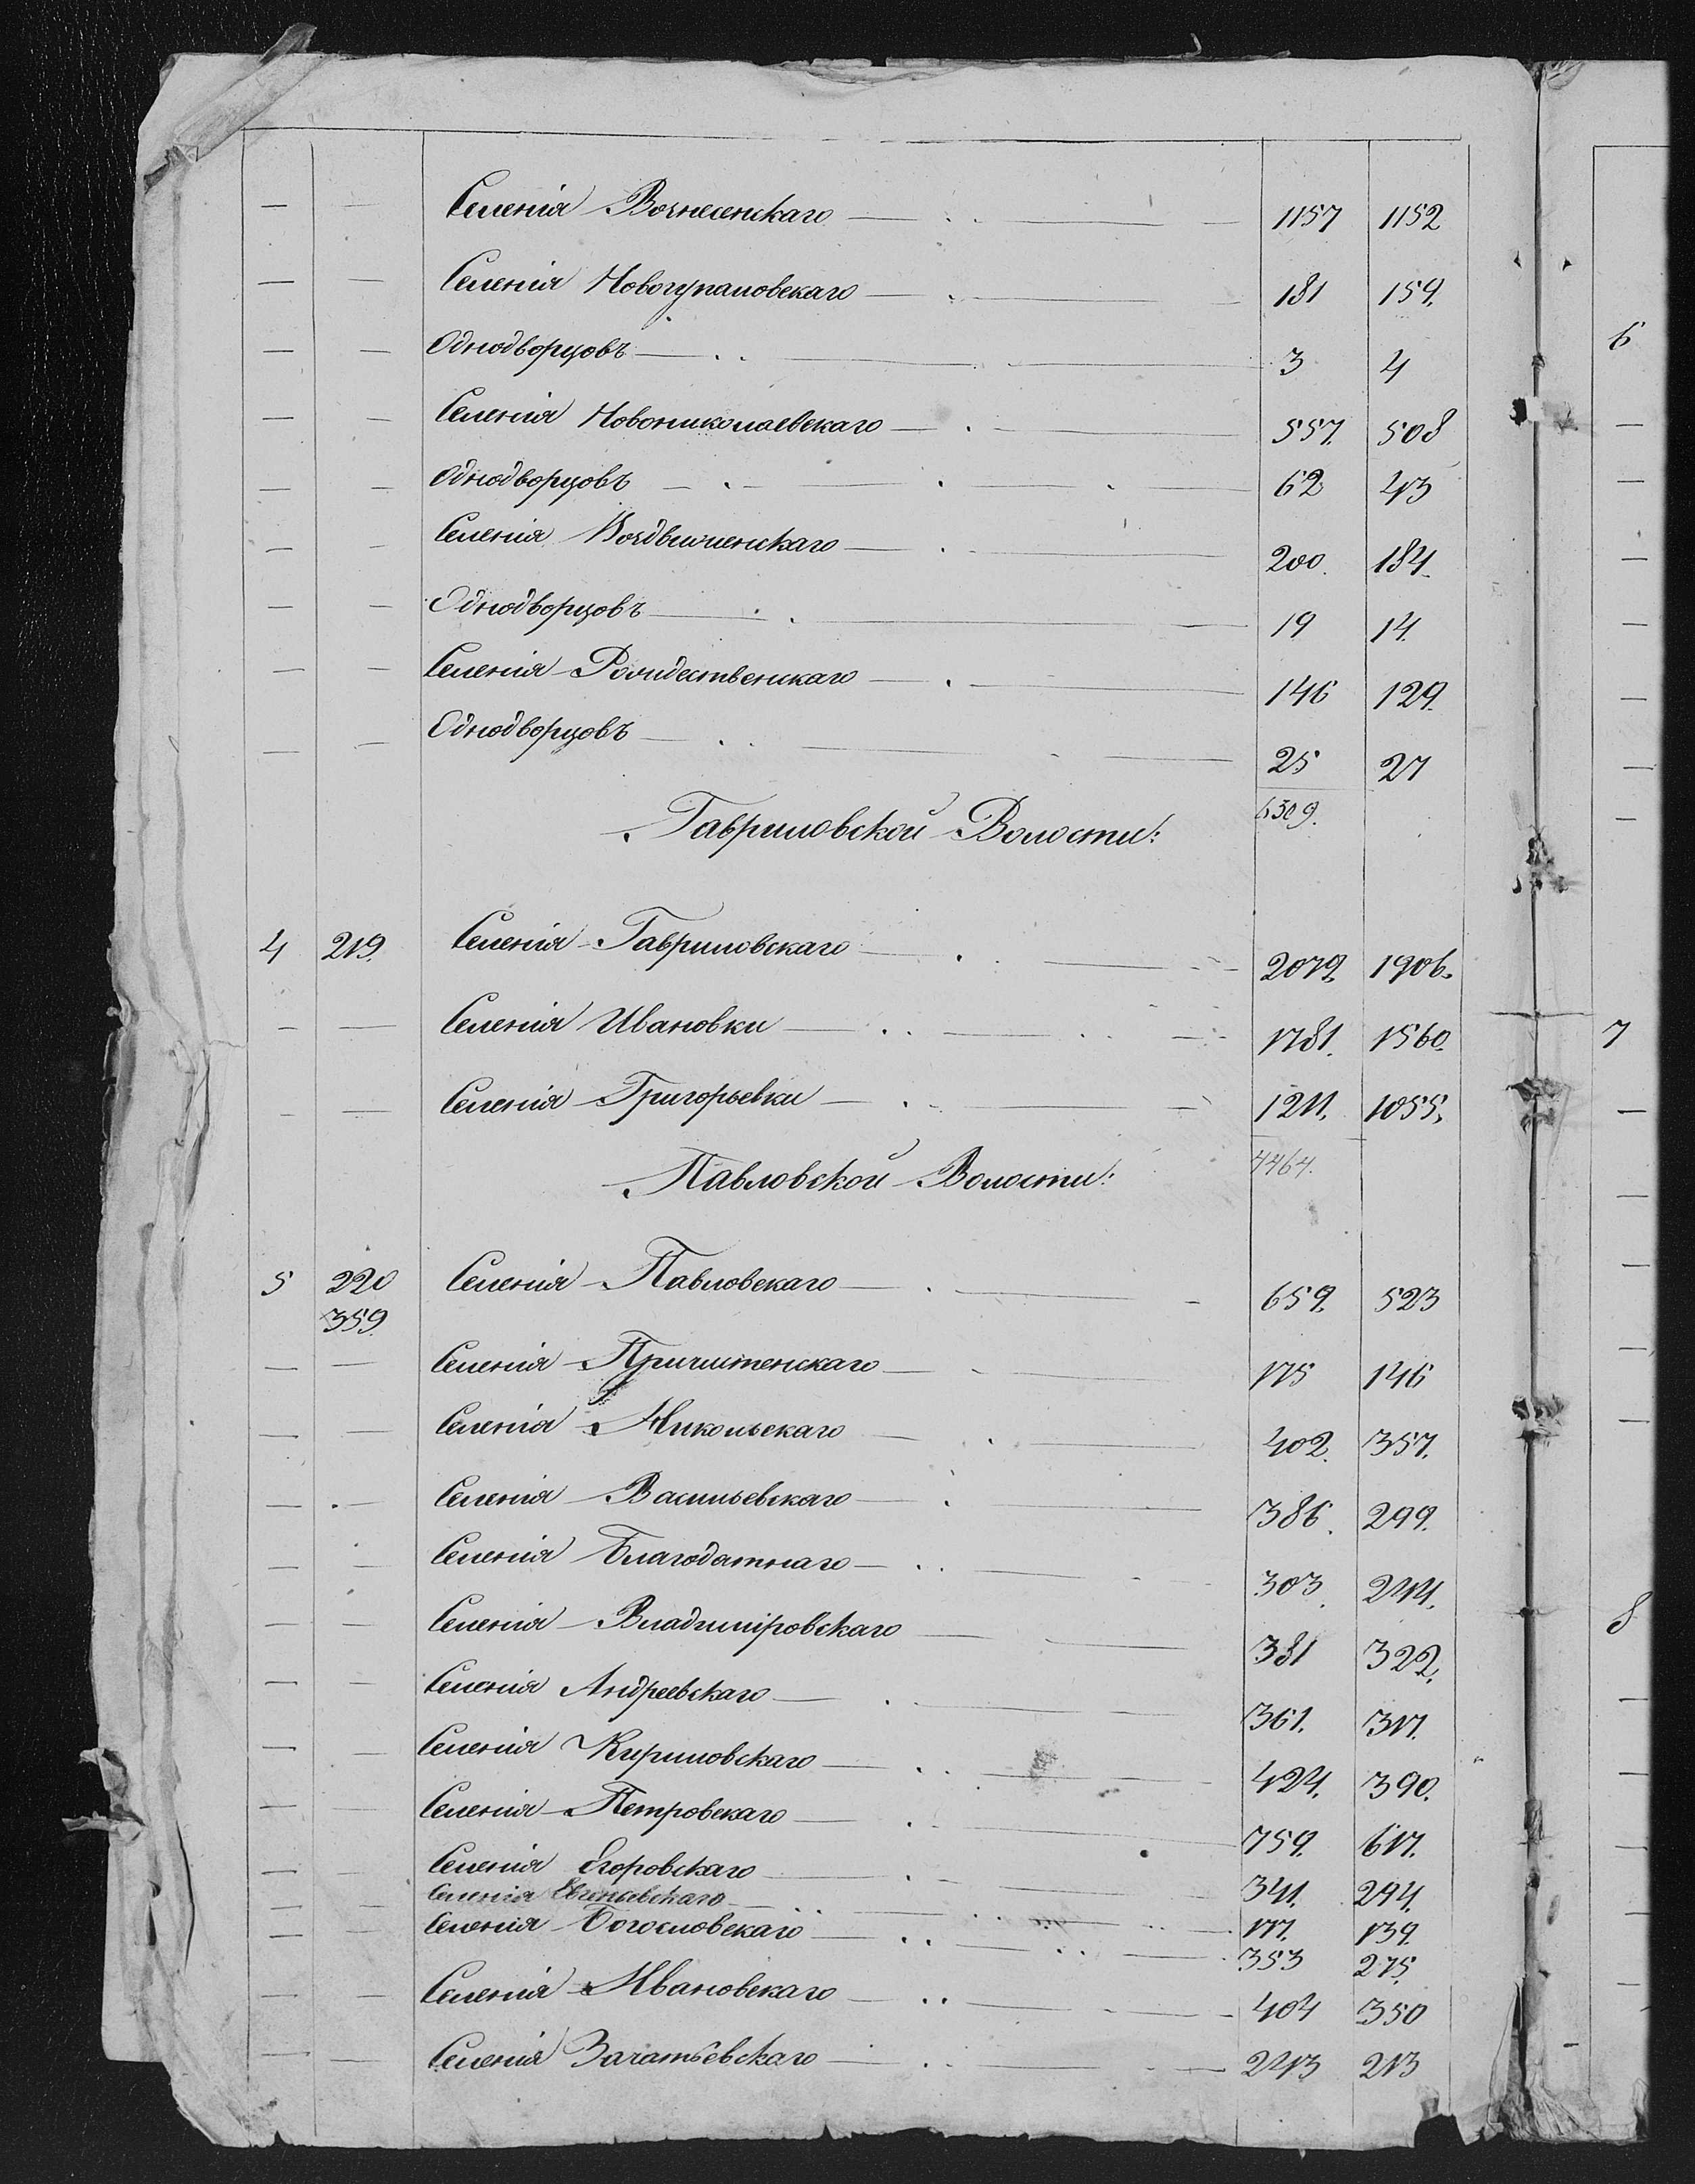 — — Селенія Вознесенскаго — 1157 1152
— — Селенія Новогупаловскаго — 181 159.
— — Однодворцовъ — 3 4
— — Селенія Новониколаевскаго — 557. 508
— — Однодворцовъ — 62 43
— — Селенія Воздвиженскаго — 200. 184.
— — Однодворцовъ — 19 14.
— — Селенія Рождественскаго — 146 129.
— — Однодворцовъ — 25 27
6309.
Гавриловской Волости:
4 219. Селенія Гавриловскаго — 2079. 1906.
— — Селенія Ивановки — 1781. 1560.
— — Селенія Григорьевки — 1211. 1055.
4464.
Павловской Волости:
5 220 Селенія Павловскаго — 659. 523
359.
— — Селенія Пречистенскаго — 175 146
— — Селенія Никольскаго — 402. 357.
— — Селенія Васильевскаго — 386. 299.
— — Селенія Благодатнаго — 303.
— — Селенія Владимировскаго — 381 322.
— — Селенія Андреевскаго — 361. 317.
— — Селенія Кириловскаго — 424. 390.
— — Селенія Петровскаго — 759. 617.
— — Селенія Егоровскаго — 341. 294.
— — Селенія Евгеньевскаго — 177. 139.
— — Селенія Богословскаго — 353 275.
— — Селенія Ивановскаго — 404 350
— — Селенія Зачатьевскаго — 243 213
6
7
8